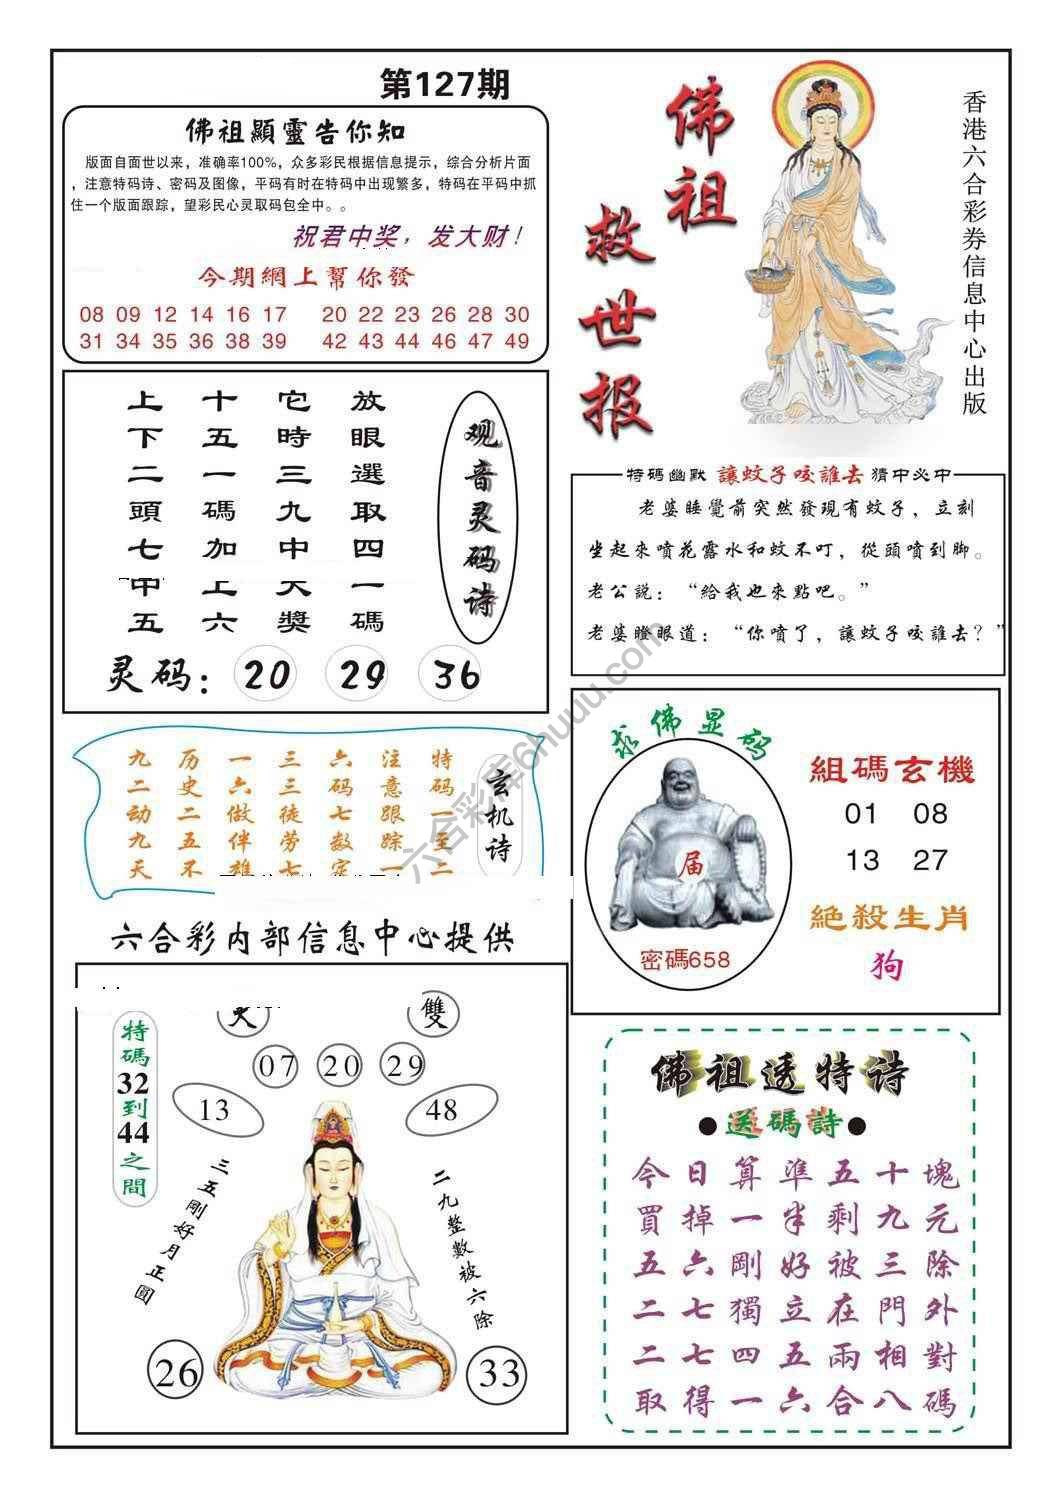 第127期
佛祖顯靈告你知
版面自面世以来，准确率100%，众多彩民根据信息提示，综合分析片面
，注意特码诗、密码及图像，平码有时在特码中出现繁多，特码在平码中抓
住一个版面跟踪，望彩民心灵取码包全中。。
祝君中奖，发大财！
今期網上幫你發
08 09 12 14 16 17 20 22 23 26 28 30
31 34 35 36 38 39 42 43 44 46 47 49
佛祖
救世报
香港六合彩券信息中心出版
观音灵码诗
放眼選取四一碼
它時三九中大獎
十五一碼加上六
上下二頭七中五
灵码：20 29 36
特码幽默 讓蚊子咬誰去 猜中必中
老婆睡覺前突然發現有蚊子，立刻
坐起來噴花露水和蚊不叮，從頭噴到脚。
老公説：“給我也來點吧。”
老婆瞪眼道：“你噴了，讓蚊子咬誰去？”
玄机诗
特码一至二
注意跟踪一
六码七数定
三三徒劳七
一六做伴雄
历史二五不
九二动九天
求佛显码
届
密碼658
組碼玄機
01 08
13 27
絶殺生肖
狗
六合彩内部信息中心提供
雙
07 20 29
13 48
特碼32到44之間
三五剛好月正圓
二九整數被六除
26 33
佛祖透特诗
●送碼詩●
今日算準五十塊
買掉一半剩九元
五六剛好被三除
二七獨立在門外
二七四五兩相對
取得一六合八碼
六合彩库6huuu.com